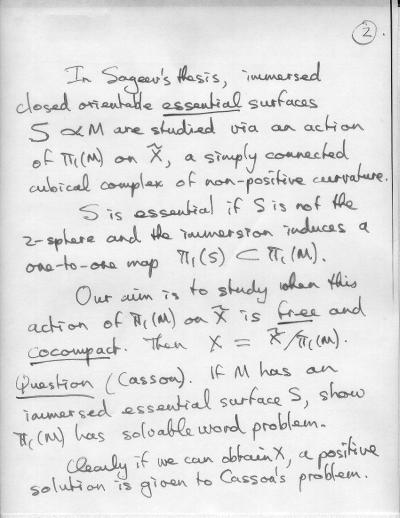 2.
In Sageev's thesis, immersed
closed orientable essential surfaces
S ∝ M are studied via an action
of π₁(M) on X̃, a simply connected
cubical complex of non-positive curvature.
S is essential if S is not the
2-sphere and the immersion induces a
one-to-one map π₁(S) ⊂ π₁(M).
Our aim is to study when this
action of π₁(M) on X̃ is free and
cocompact. Then X = X̃/π₁(M).
Question (Casson). If M has an
immersed essential surface S, show
π₁(M) has solvable word problem.
Clearly if we can obtain X, a positive
solution is given to Casson's problem.